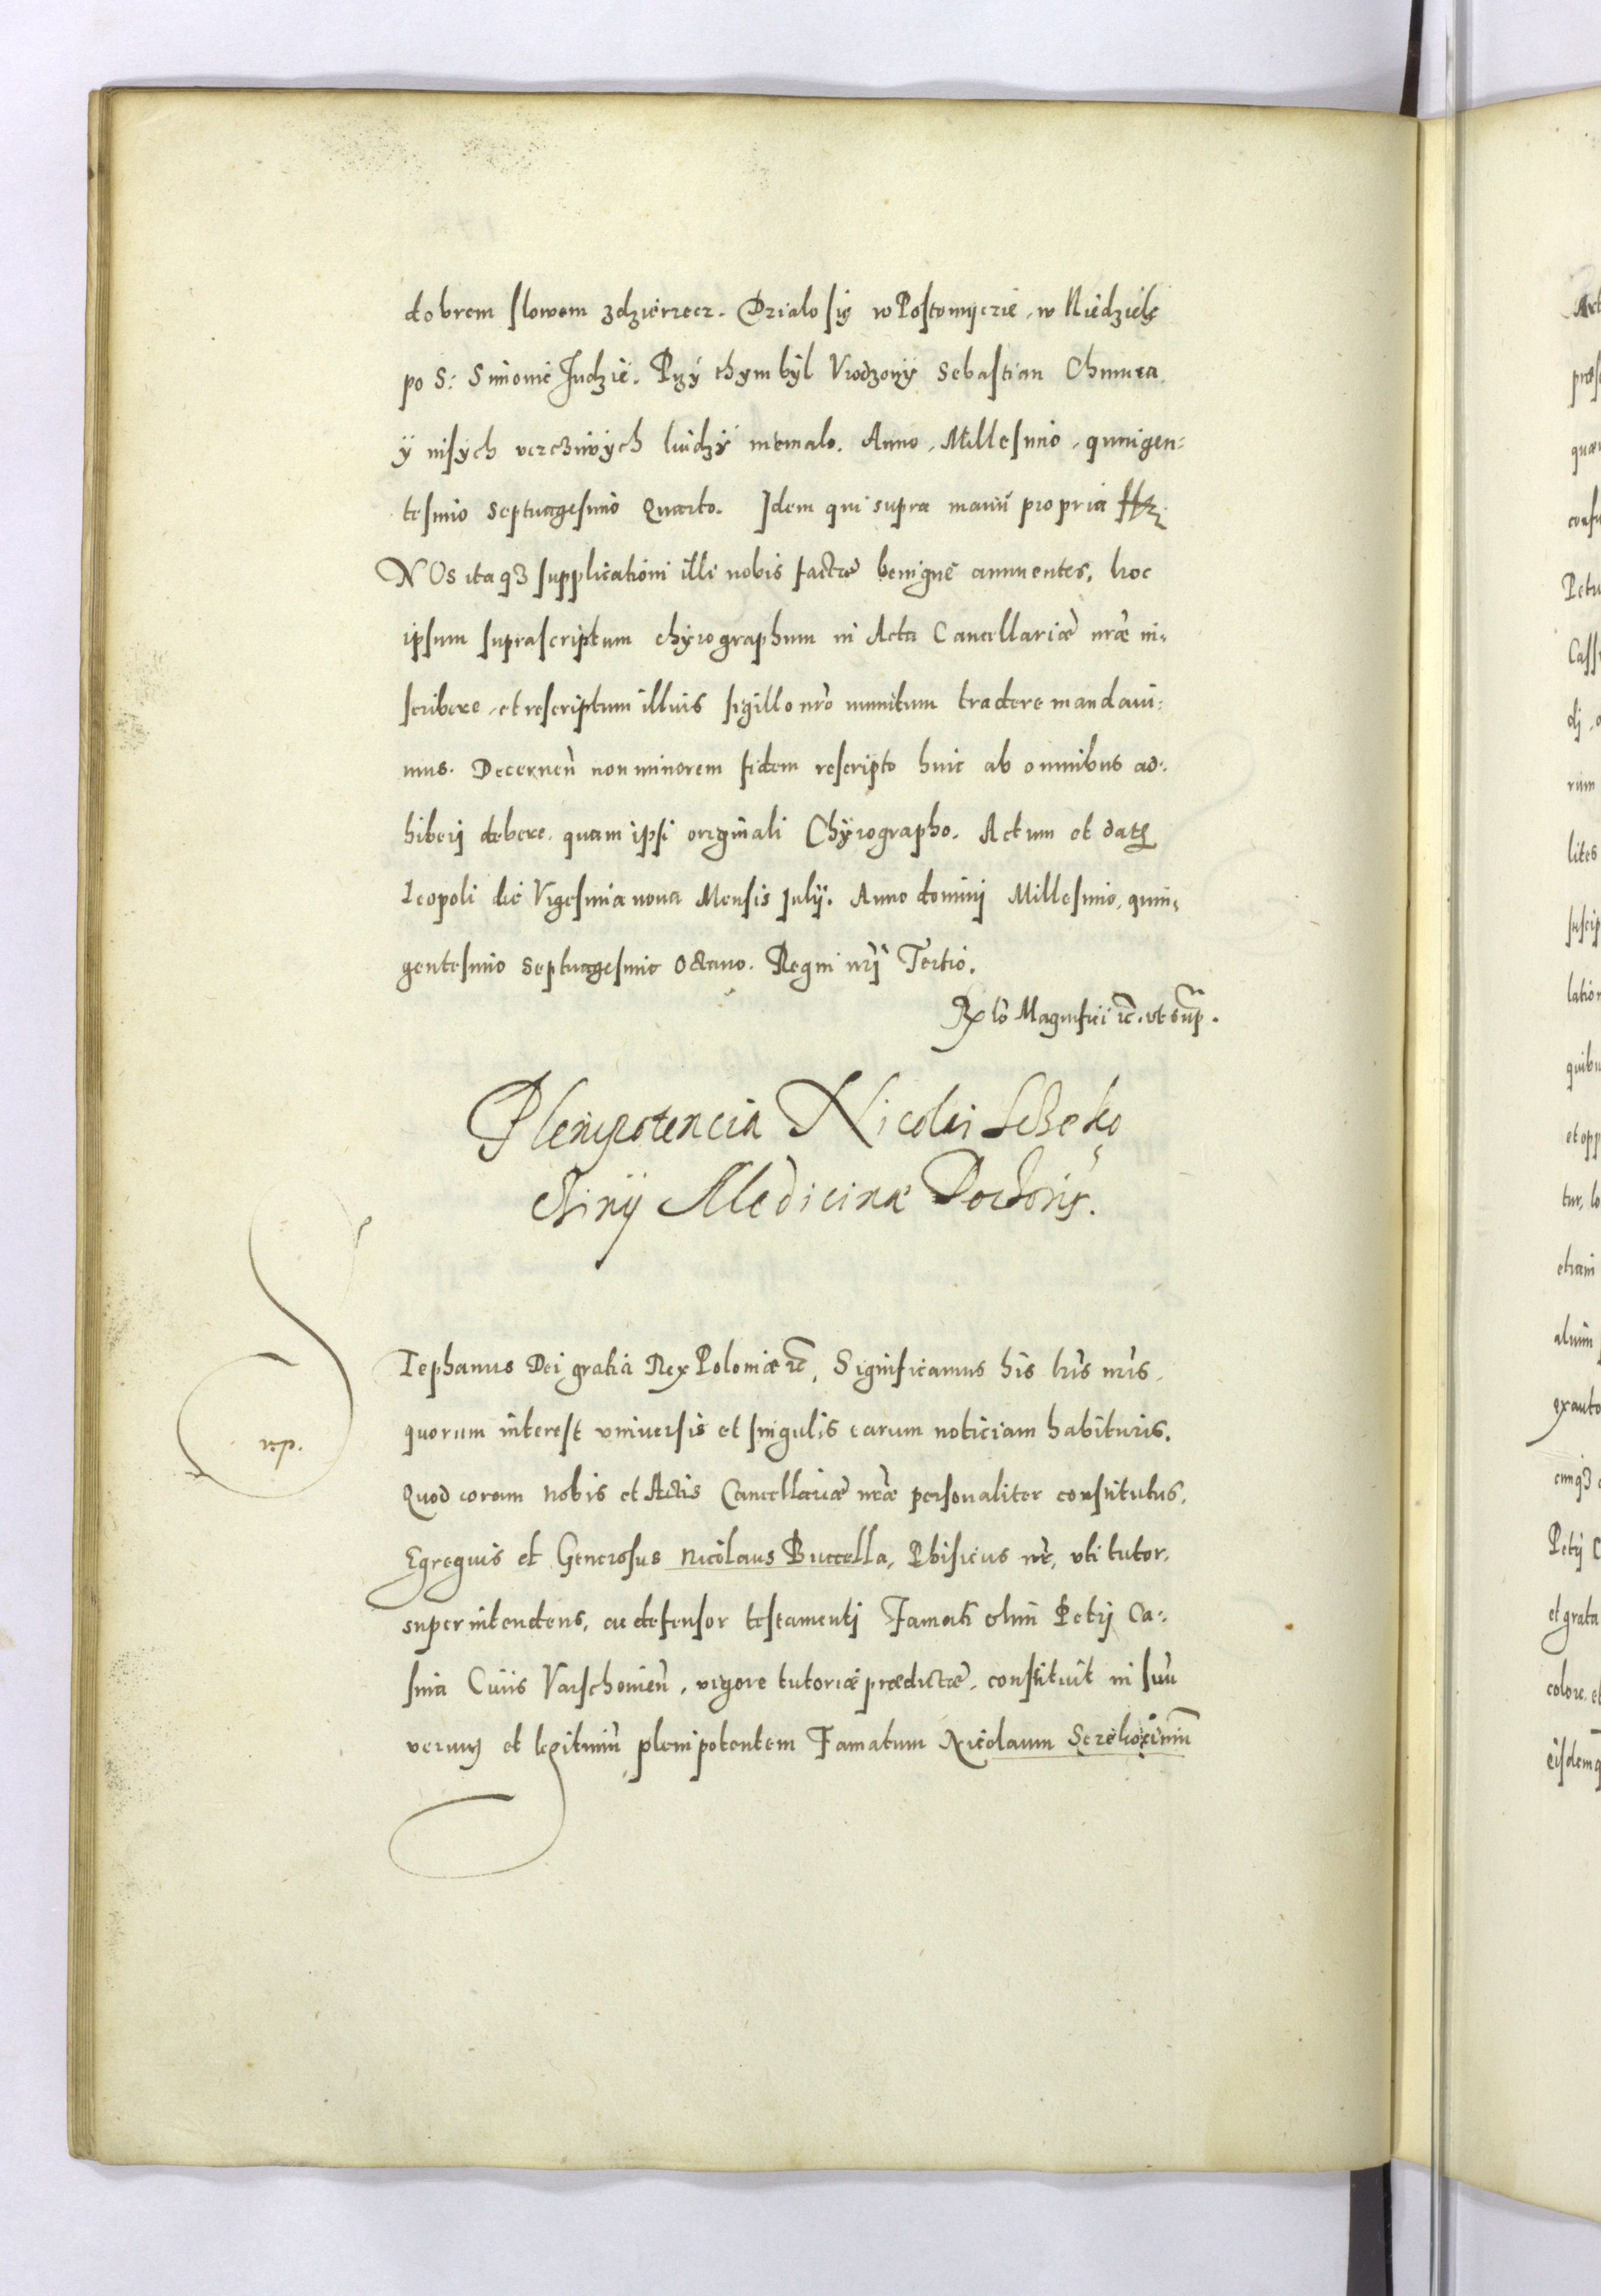 dobrem slowem zdzierzecz. Dzialo się w Postomyczie, w Niedzielę
po S: Simonie Judzie. Przÿ thym bÿl Vrodzonÿ Sebastian Chmura
ÿ inszÿch vcrzciwÿch liudzÿ niemalo. Anno, Millesimo, quingen:
tesimo septuagesimo Quarto. Idem qui supra manu propria
NOs itaq3 supplicationi illi nobis factæ benigne annuentes, hoc
ipsum suprascriptum chÿrographum in Acta Cancellariæ nr̃æ in,
scribere, et rescriptum illius sigillo nr̃o munitum tradere mandaui:
mus. Decernen̄ non minorem fidem rescripto huic ab omnibus ad:
hiberj debere, quam ipsi originali Chÿrographo. Actum et dat
Leopoli die Vigesima nona Mensis Julÿ. Anno dominj Millesimo, quin,
gentesimo Septuagesimo Octauo. Regni nr̃j Tertio.
Rlo Magnifici &c. vt sup.
Plenipotencia Nicolai
Medicinæ Doctoris.
Tephanus Dei gratia Rex Poloniæ &c, Significamus his lr̃is nr̃is,
np.
quorum interest vniuersis et singulis earum noticiam habituris.
Quod coram nobis et Actis Cancellariæ nr̃æ personaliter constitutus,
Egregius et Generosus Nicolaus Buccella, Phisicus nr̃, vti tutor,
superintendens, ac defensor testamenti Famati olim Petrj Ca:
sina Ciuis Varschouien̄, vigore tutoriæ prædictæ, constituit in suū
verum et legitimū plenipotentem Famatum Nicolaum